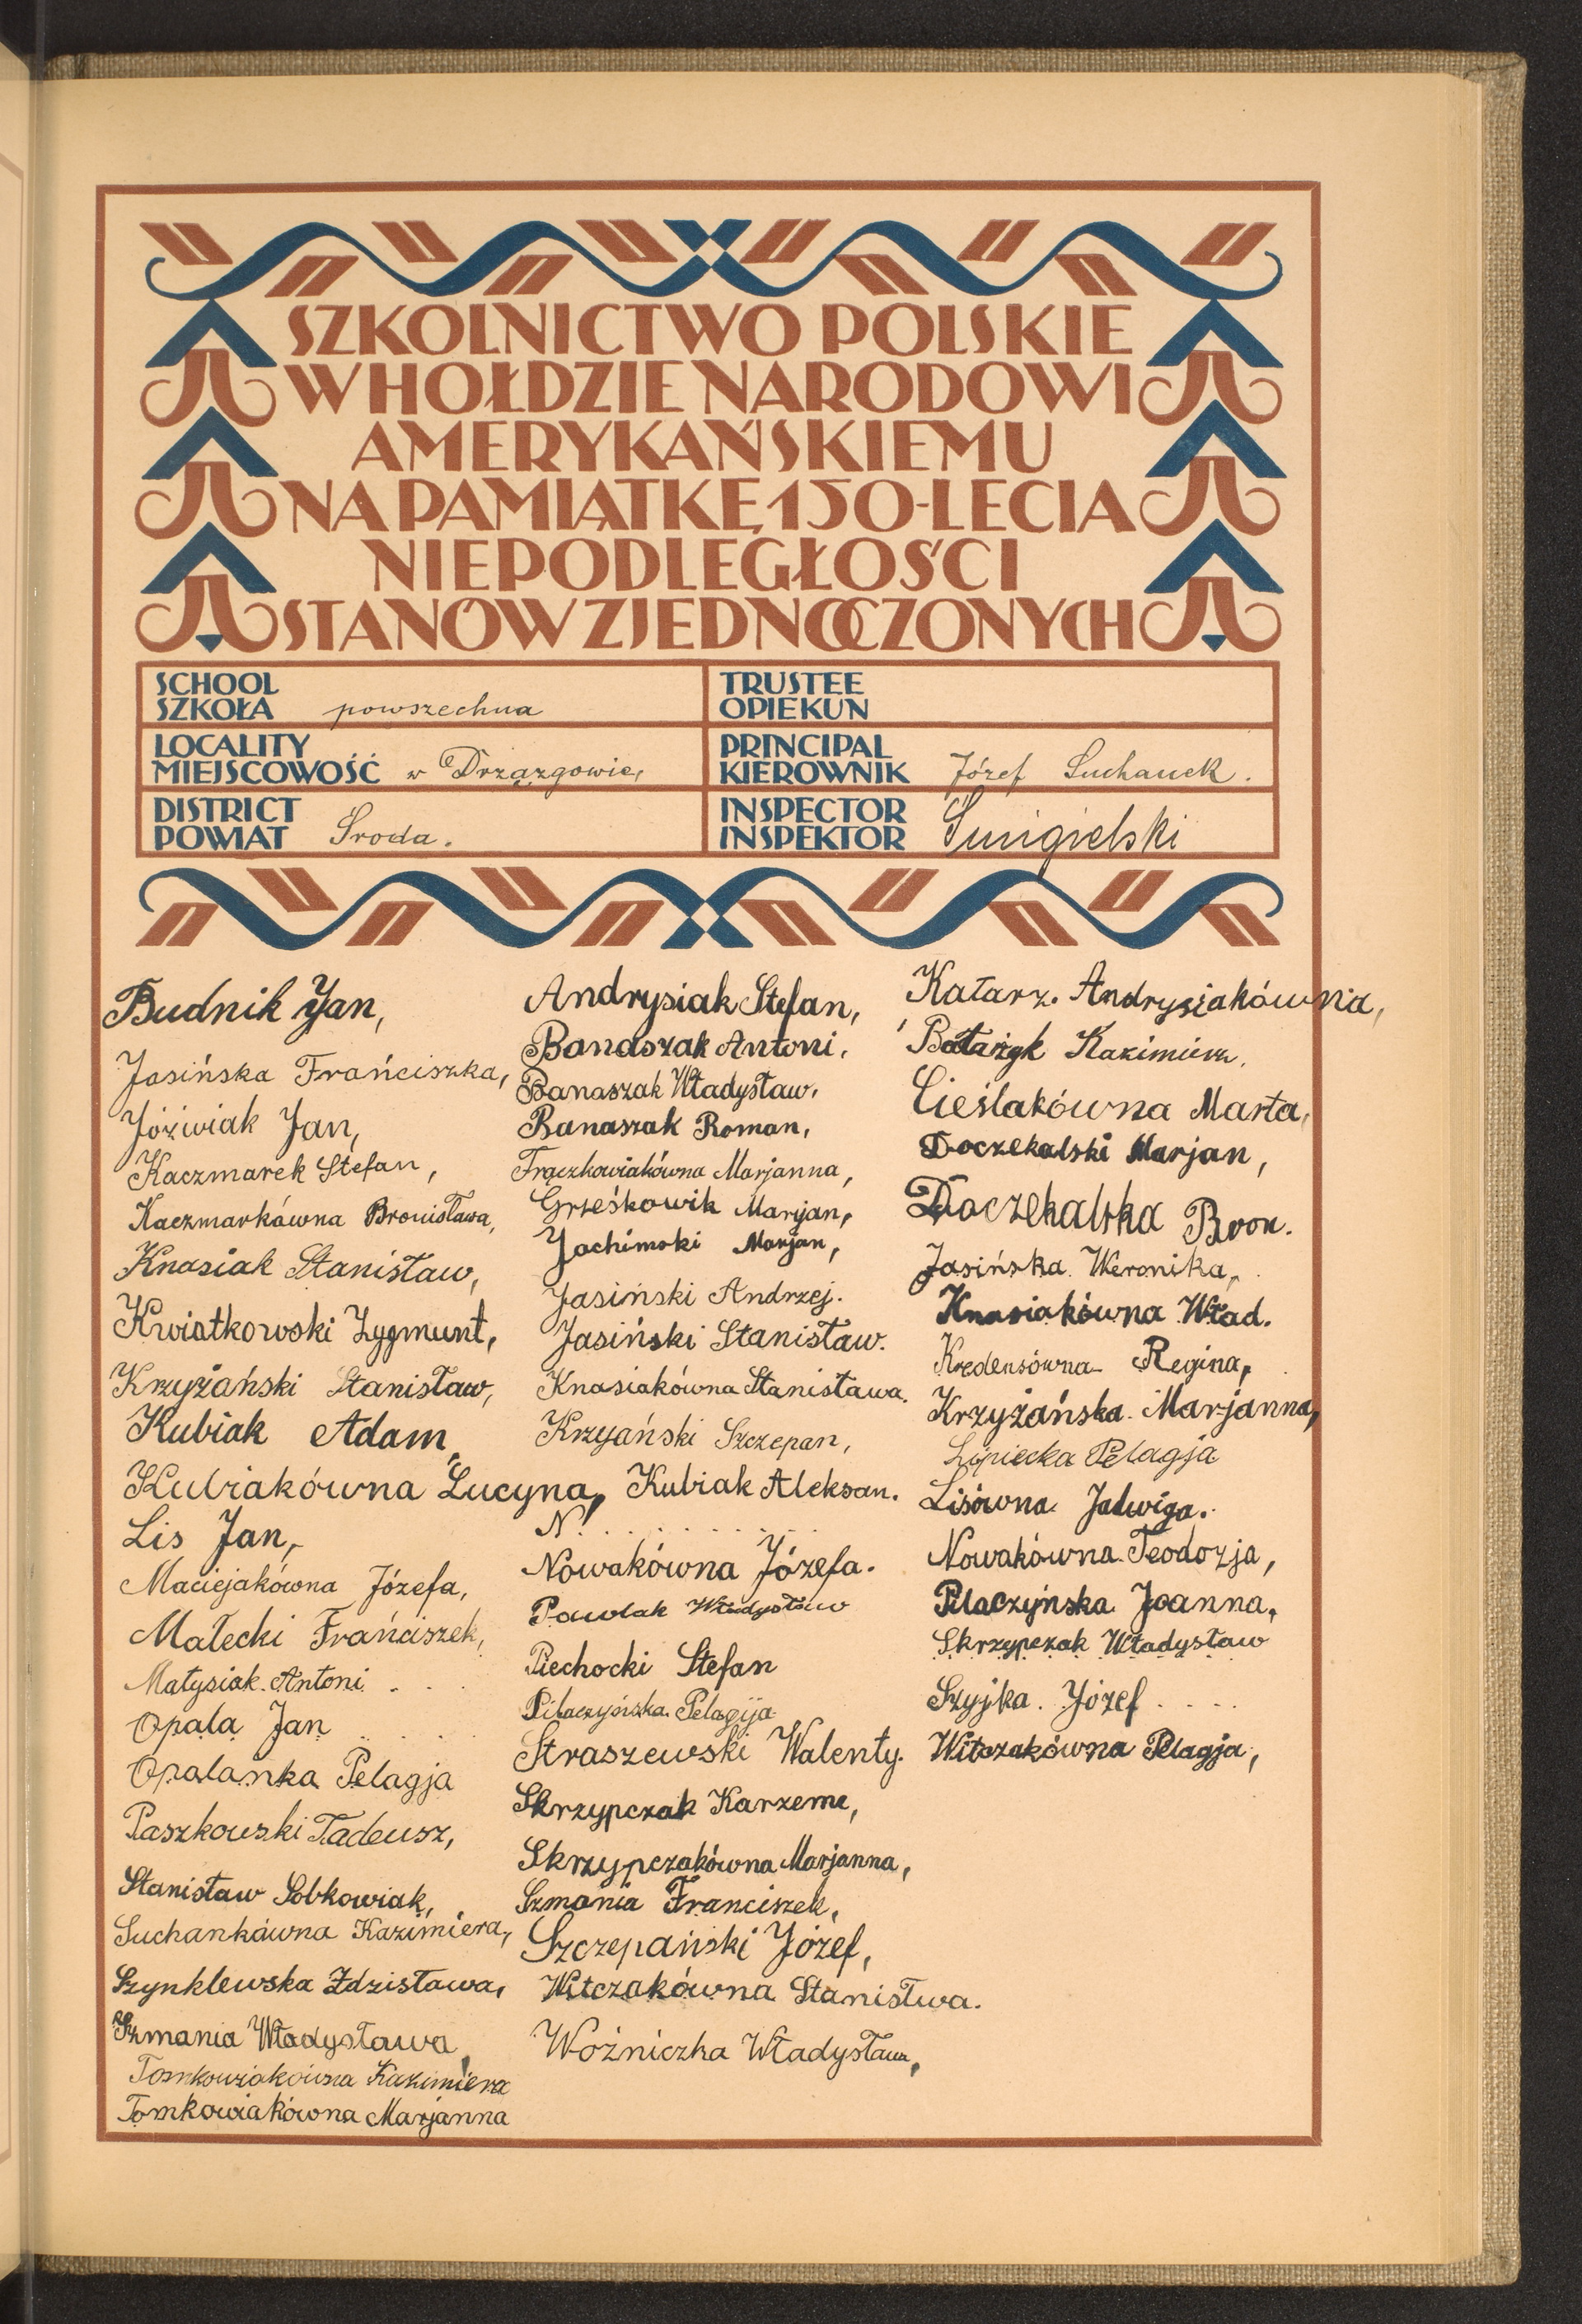 SZKOLNICTWO POLSKIE
W HOŁDZIE NARODOWI
AMERYKAŃSKIEMU
NA PAMIĄTKĘ 150-LECIA
NIEPODLEGŁOŚCI
STANÓW ZJEDNOCZONYCH
SCHOOL
SZKOŁA powszechna
TRUSTEE
OPIEKUN
LOCALITY
MIEJSCOWOŚĆ w Drzązgowie,
PRINCIPAL
KIEROWNIK Józef Suchanek.
DISTRICT
POWIAT Środa.
INSPECTOR
INSPEKTOR Śmigielski
Budnik Jan,
Jasińska Frańciszka,
Jóźwiak Jan,
Kaczmarek Stefan,
Kaczmarkówna Bronisława,
Knasiak Stanisław,
Kwiatkowski Zygmunt,
Krzyżański Stanisław,
Kubiak Adam,
Kubiakówna Lucyna,
Lis Jan,
Maciejakówna Józefa,
Małecki Frańciszek,
Matysiak Antoni
Opala Jan
Opalanka Pelagja
Paszkowski Tadeusz,
Stanisław Sobkowiak,
Suchankówna Kazimiera,
Szynklewska Zdzisława,
Szmania Władysława,
Tomkowiakówna Kazimiera
Tomkowiakówna Marjanna
Andrysiak Stefan,
Banaszak Antoni,
Banaszak Władysław,
Banaszak Roman,
Frączkowiakówna Marjanna,
Grześkowik Maryjan,
Jachimski Marjan,
Jasiński Andrzej.
Jasiński Stanisław.
Knasiakówna Stanisława.
Krzyański Szczepan,
Kubiak Aleksan.
N. . . . . . . . . .
Nowakówna Józefa.
Pawlak Władysław
Piechocki Stefan
Pilaczyńska Pelagija
Straszewski Walenty.
Skrzypczak Karzeme,
Skrzypczakówna Marjanna,
Szmania Franciszek,
Szczepański Józef,
Witczakówna Stanistwa.
Woźniczka Władysław,
Katarz. Andrysiakówna,
Batażyk Kazimierz,
Cieślakówna Marta,
Doczekalski Marjan,
Doczekalska Bron.
Jasińska Weronika,
Knasiakówna Wład.
Kredensówna Regina,
Krzyżańska Marjanna,
Lipiecka Pelagja
Lisówna Jadwiga.
Nowakówna Teodozja,
Pilaczyńska Joanna,
Skrzypczak Władysław
Szyjka Józef
Witczakówna Pelagja,